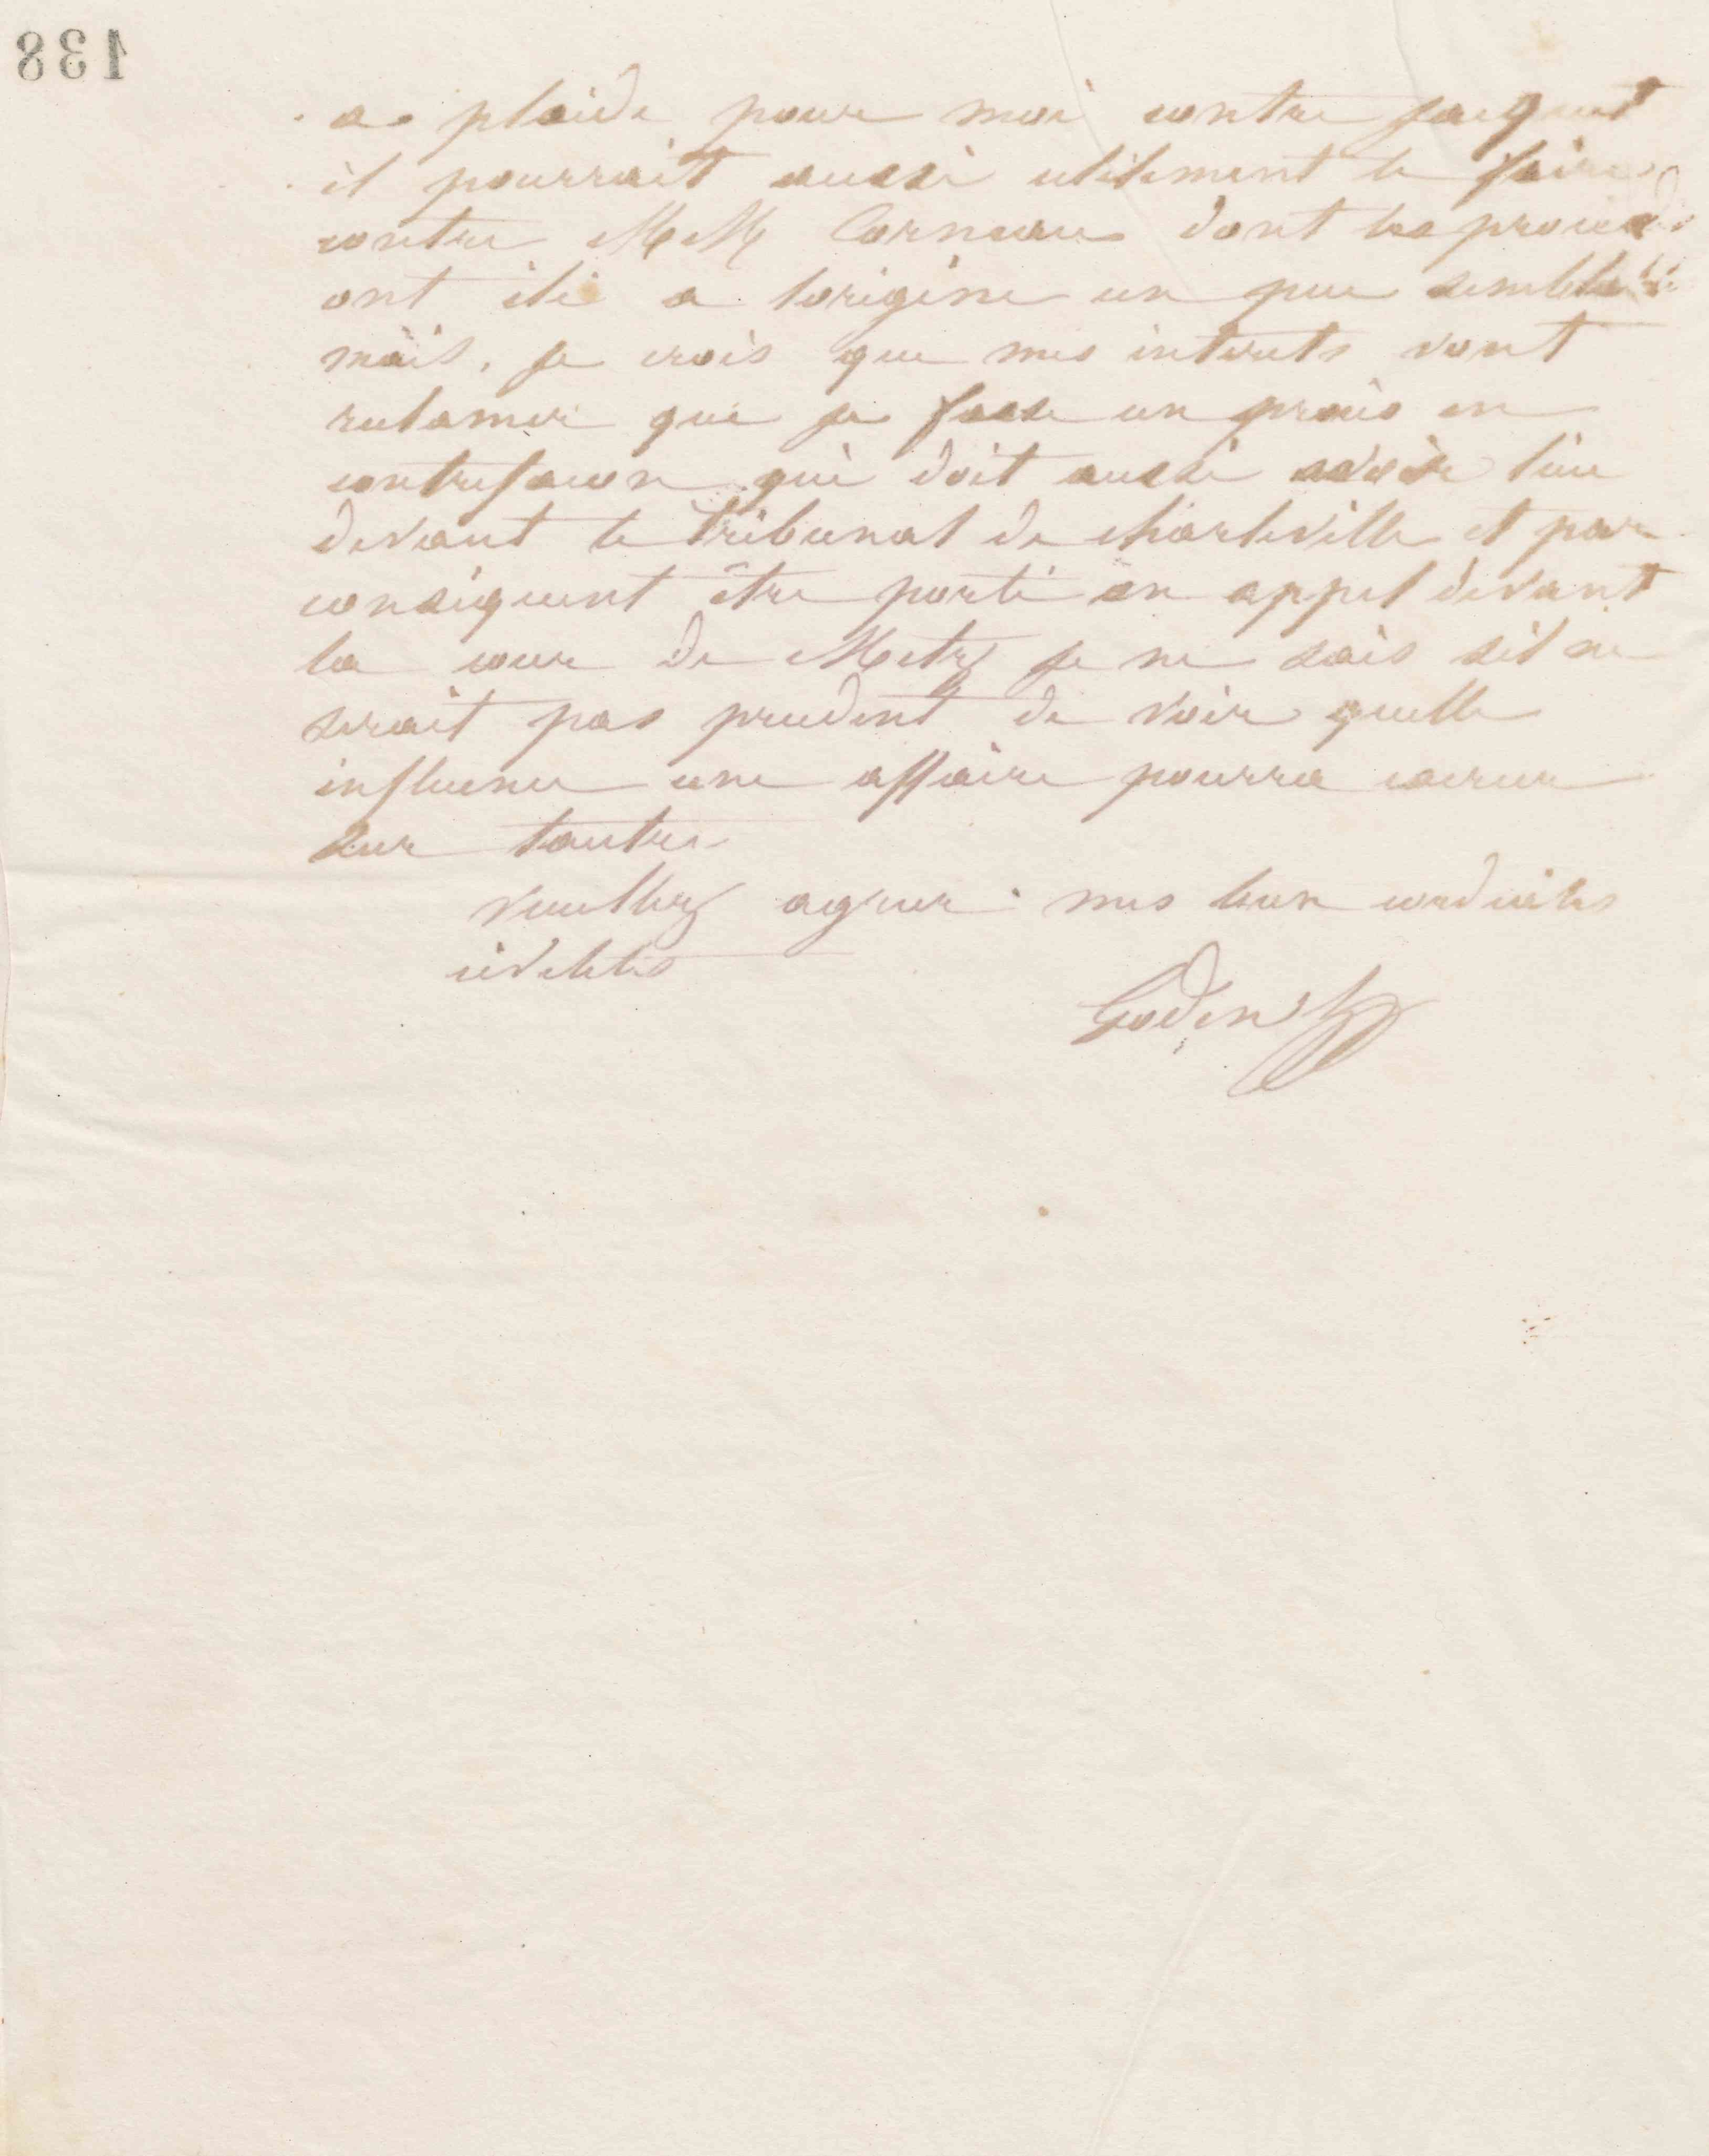 138
a plaidé pour moi contre Jacquet
il pourrait aussi utilement le faire
contre MM Corneau dont les procédés
ont été a lorigine un peu semblables
mais, je crois que mes interets vont
reclamer que je fasse un procès en
contrefacon qui doit aussi avoir lieu
devant le tribunal de charleville et par
conséquent être porté en appel devant
la cour de Metz je ne sais sil ne
serait pas prudent de voir quelle
influence une affaire pourra exercer
sur lautre
veuillez agreer mes bien cordiales
civilités
Godin